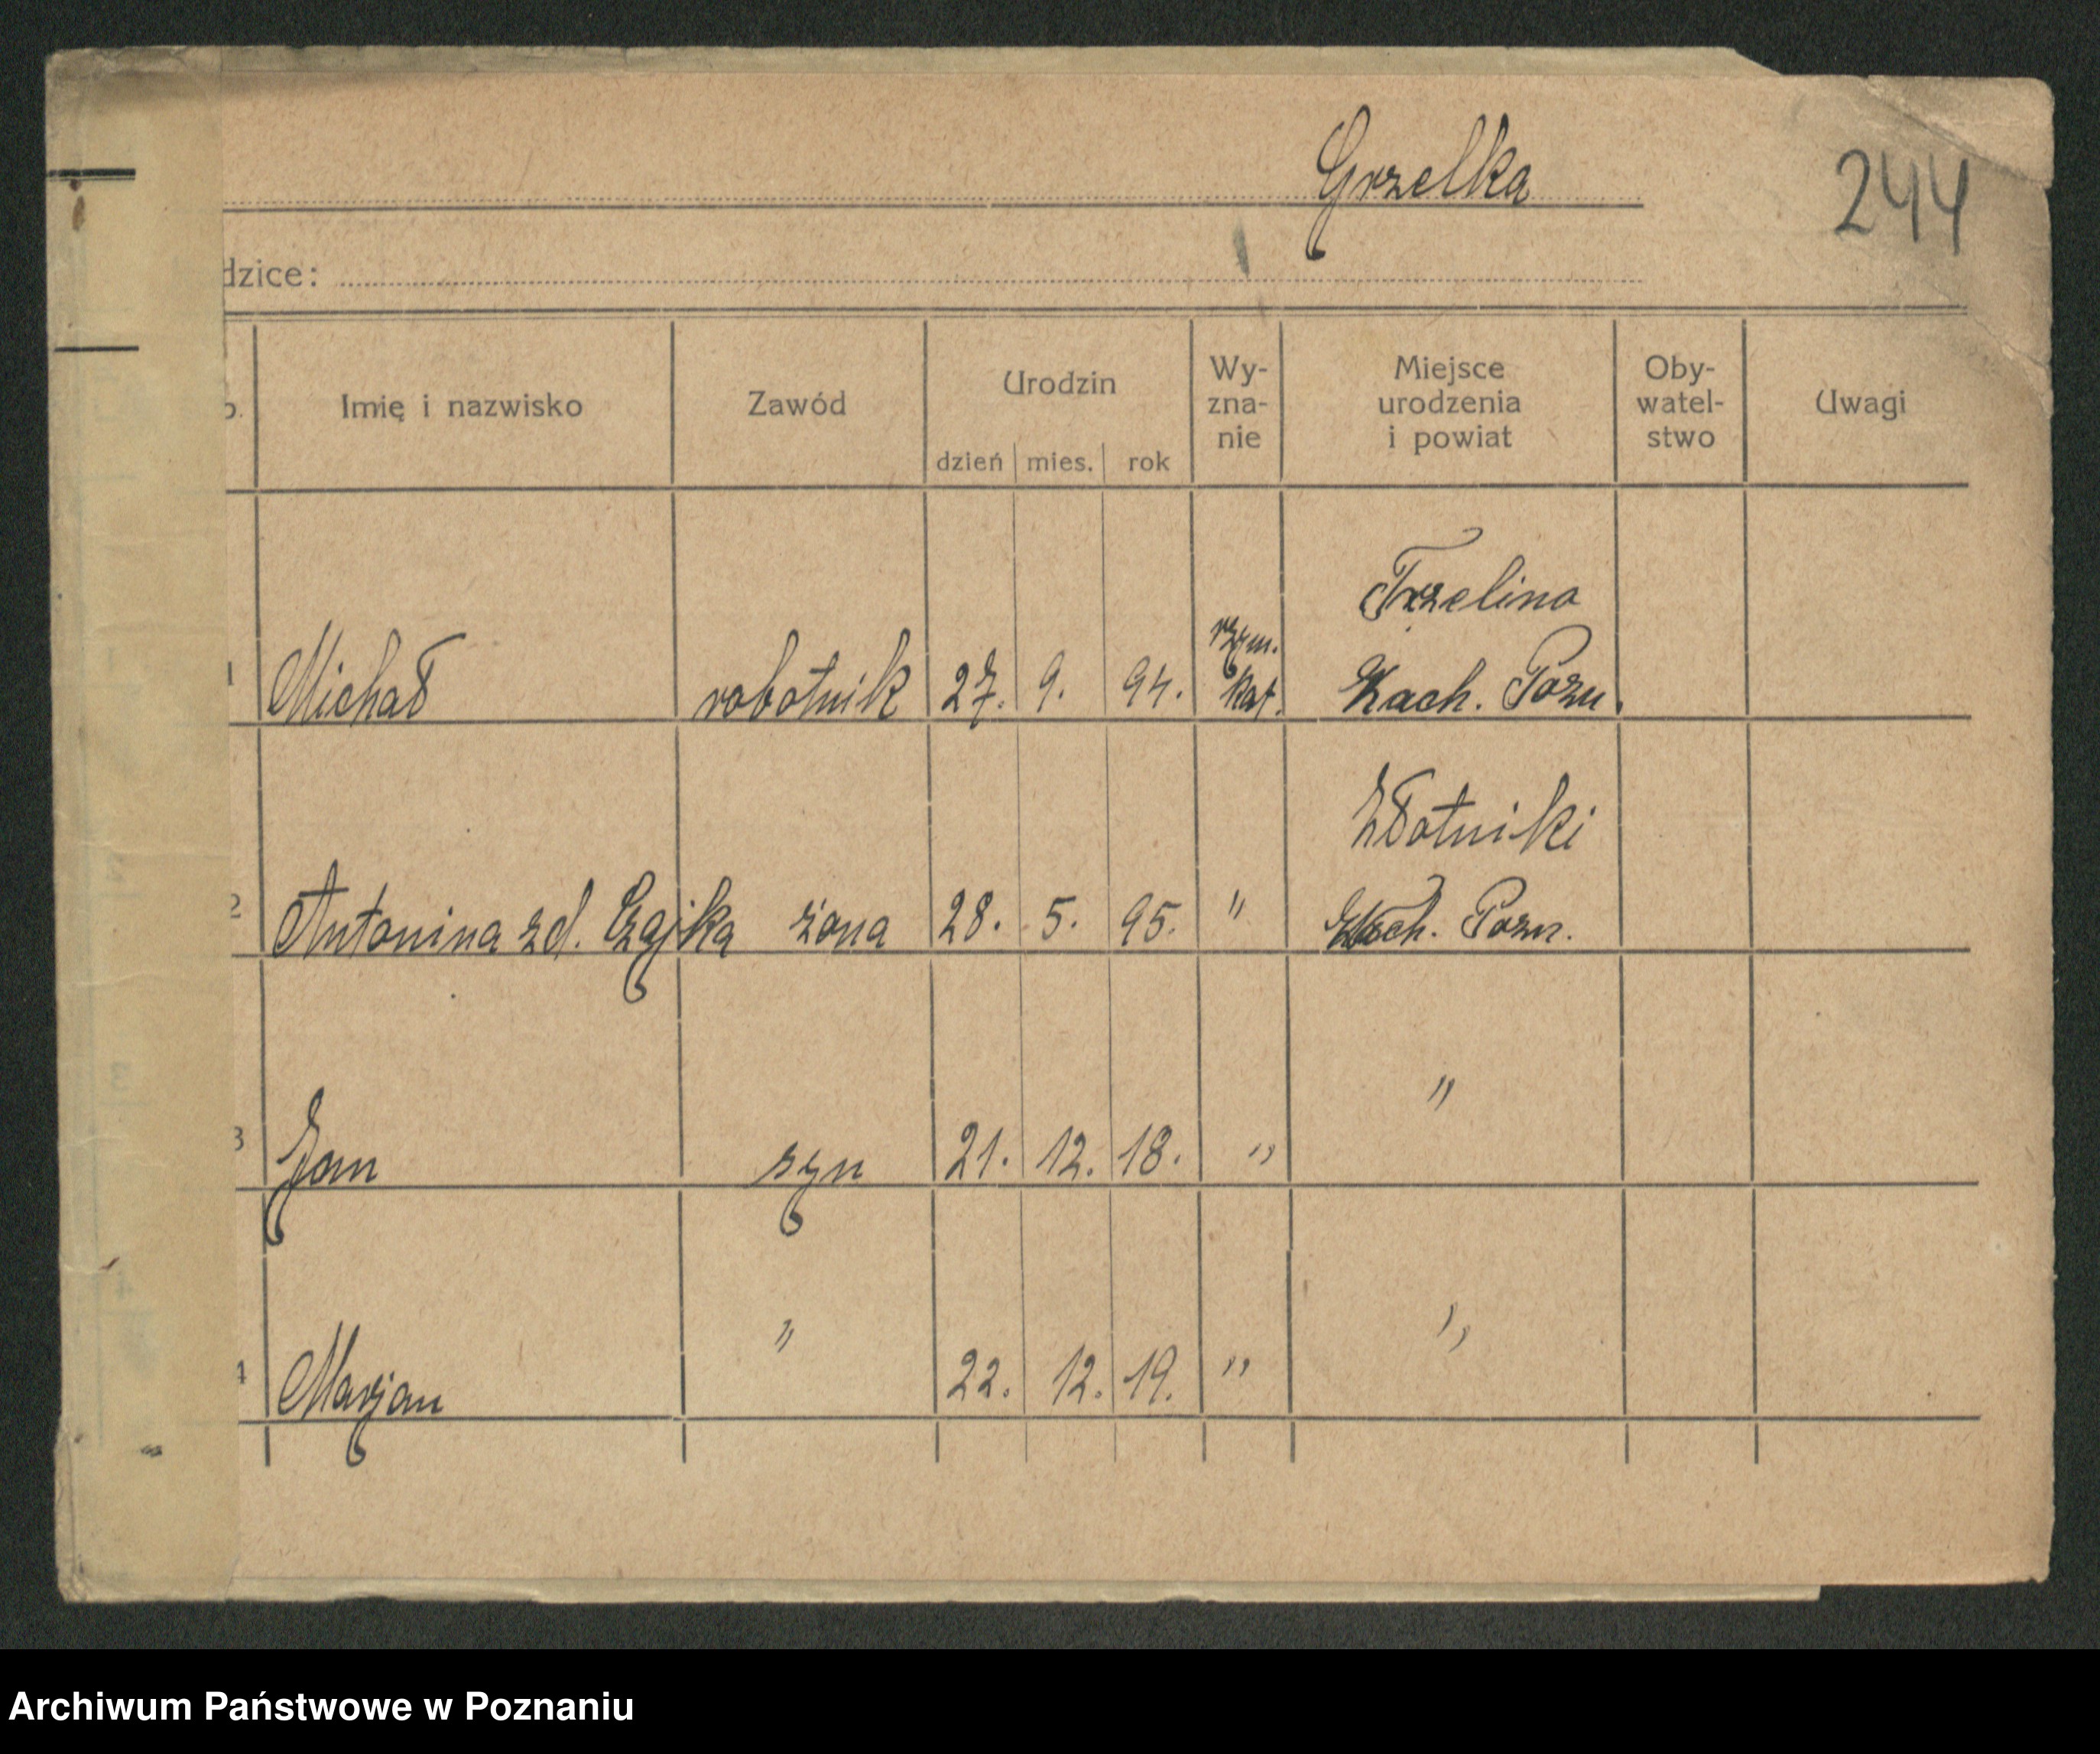 Grzelka
244
dzice:
Imię i nazwisko Zawód Urodzin dzień mies. rok Wy-zna-nie Miejsce urodzenia i powiat Oby-watel-stwo Uwagi
Trzelino
1 Michał robotnik 27. 9. 94. rzym. kat. Zach. Pozn.
Złotniki
2 Antonina zd. Czajka żona 28. 5. 95. " Zach. Pozn.
3 Jan syn 21. 12. 18. " "
4 Marjan " 22. 12. 19. " "
Archiwum Państwowe w Poznaniu